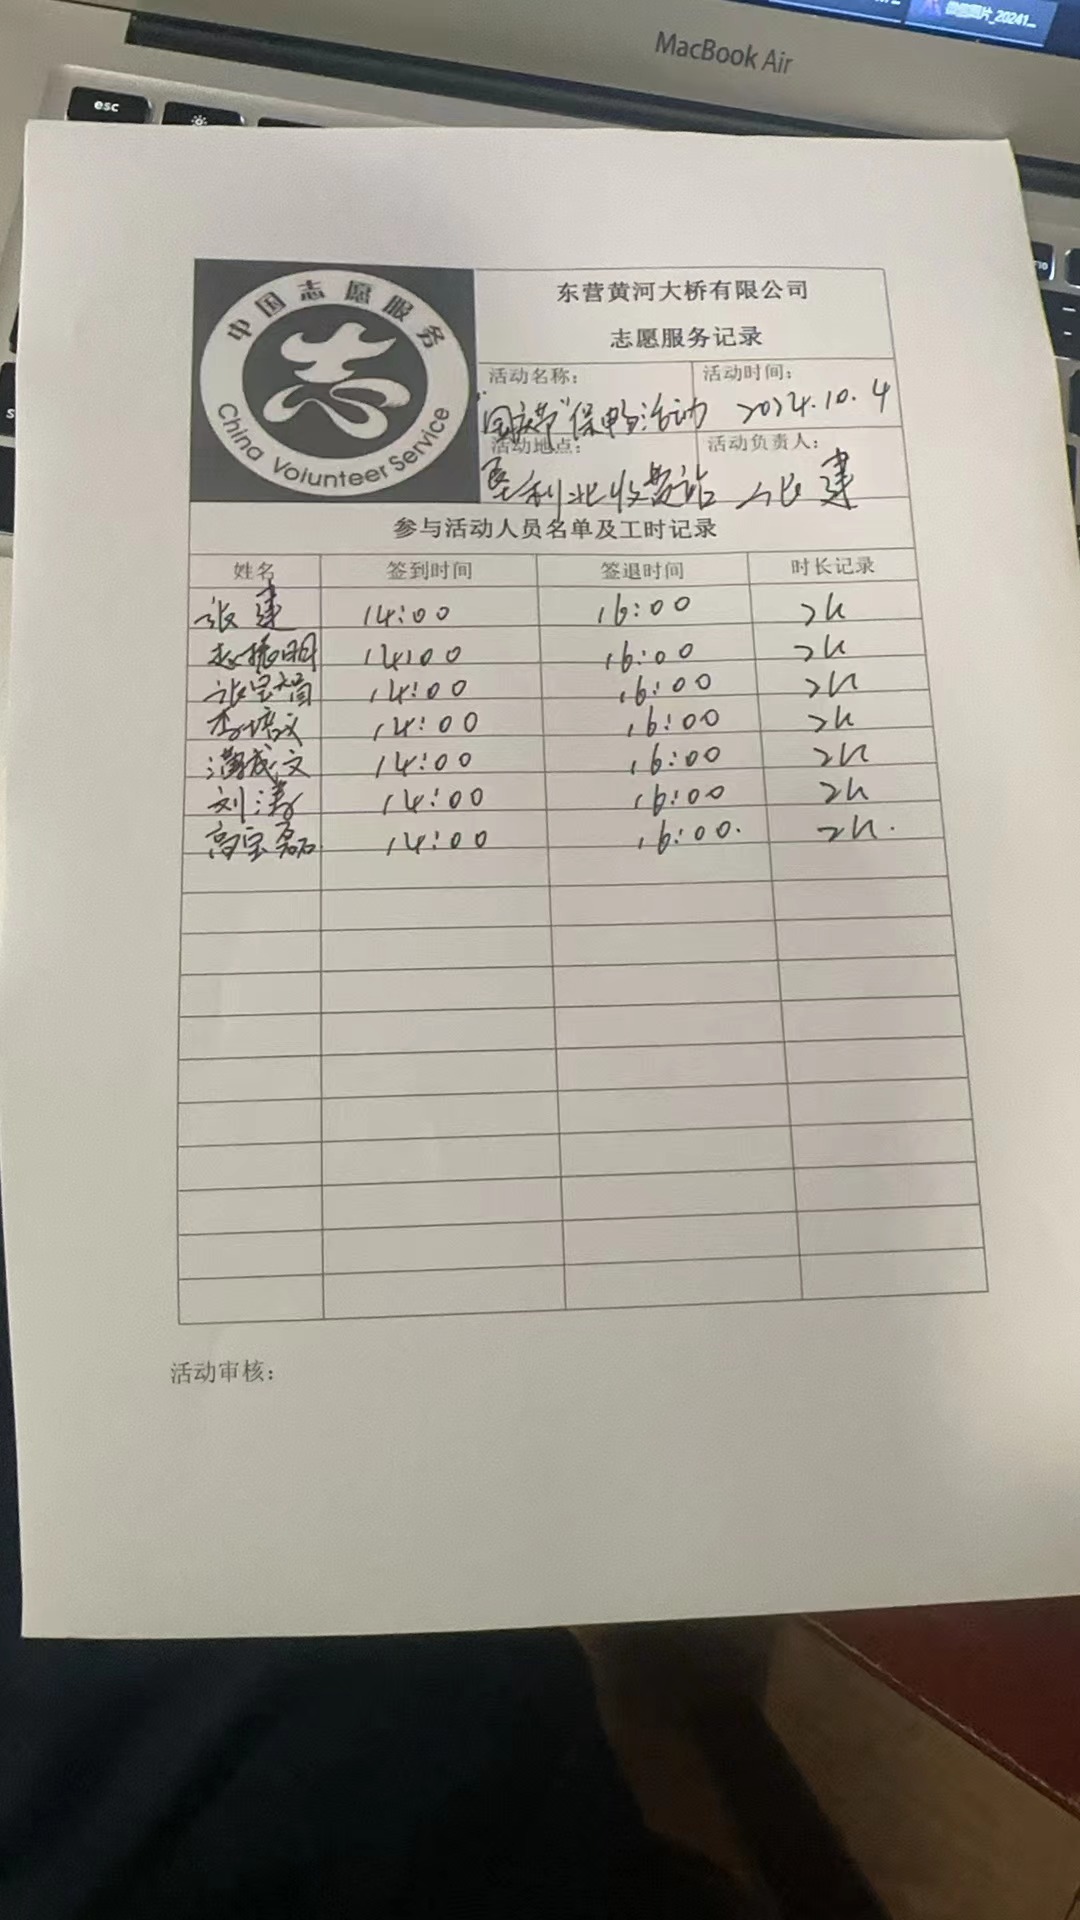 微信图片_20241...
MacBook Air
esc
中国志愿服务
China Volunteer Service
东营黄河大桥有限公司
志愿服务记录
活动名称: 活动时间:
"国庆节"保畅活动 2024.10.4
活动地点: 活动负责人:
垦利北收费站 张建
参与活动人员名单及工时记录
姓名 签到时间 签退时间 时长记录
张建 14:00 16:00 2h
振明 14:00 16:00 2h
张宝 14:00 16:00 2h
李培义 14:00 16:00 2h
满成文 14:00 16:00 2h
刘涛 14:00 16:00 2h
高宝磊 14:00 16:00. 2h.
活动审核: